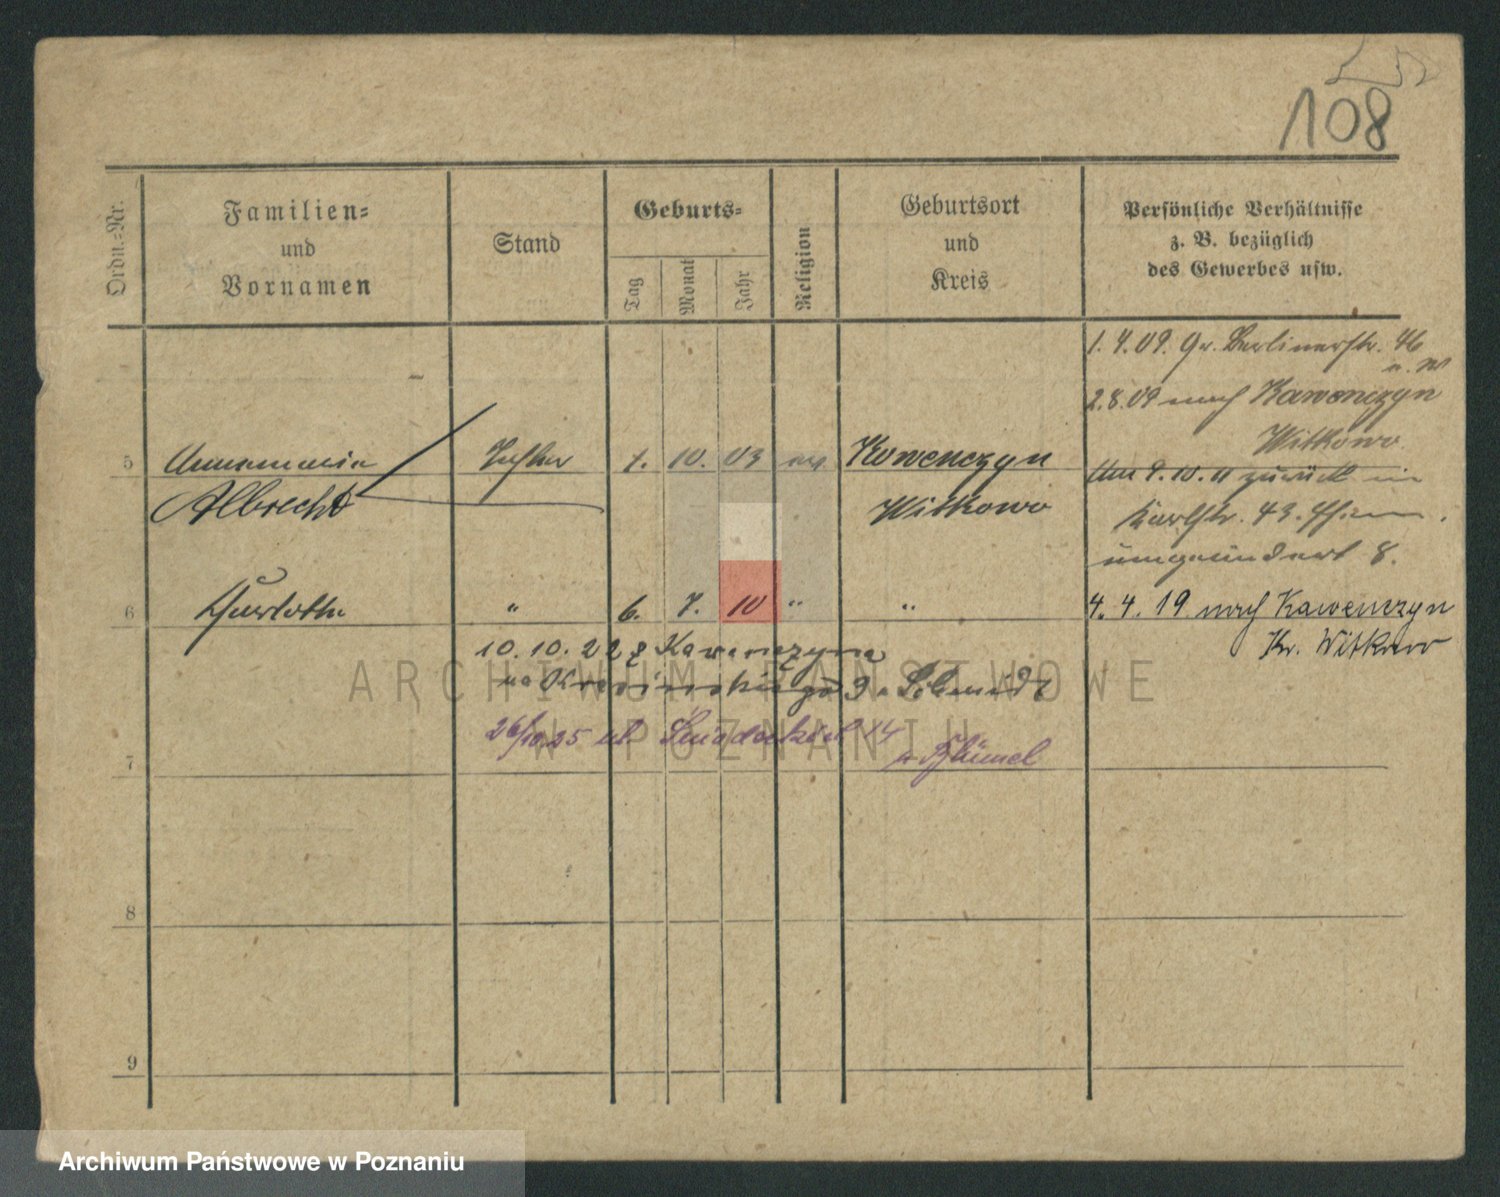 108
Ordn.-Nr.
Familien-
und
Vornamen
Stand
Geburts-
Tag
Monat
Jahr
Religion
Geburtsort
und
Kreis
Persönliche Verhältnisse
z. B. bezüglich
des Gewerbes usw.
1. 4. 09. Gr. Berlinerstr. 46
2. 8. 09 nach Kawenczyn
Witkowo
5 Annemarie Tochter 1. 10. 03 ev. Kowenczyn
Albrecht Witkowo
Am 9. 10. 11 zurück
Karlstr. 43.
umgeändert 8.
6 " 6. 7. 10 " "
4. 4. 19 nach Kawenczyn
Kr. Witkowo
10. 10. 22 z Kawenczyna
na Krasińskiego 9 Schmidt
26/10 25 ul. Śniadeckich 14
7
8
9
ARCHIWUM PAŃSTWOWE
W POZNANIU
Archiwum Państwowe w Poznaniu